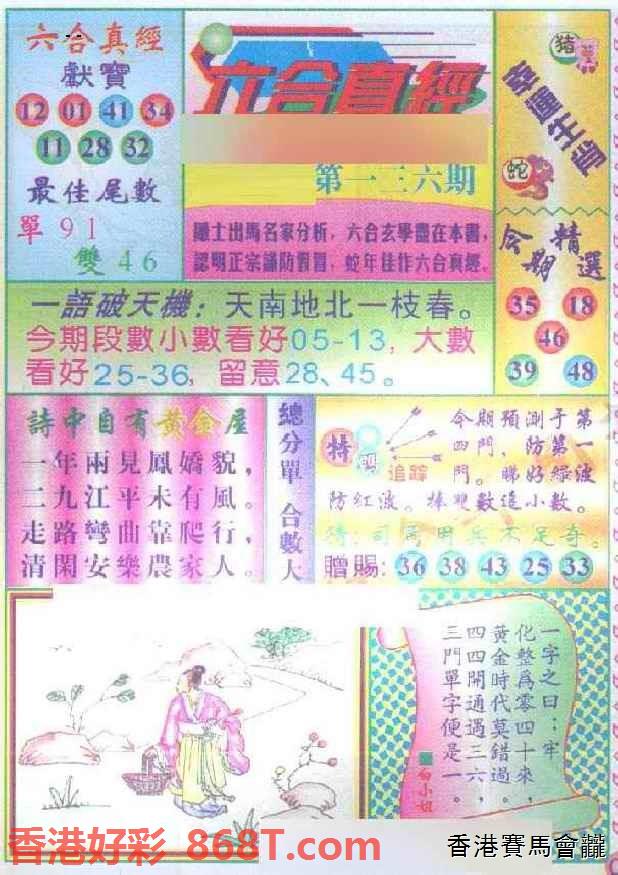 六合真經
獻寶
12 01 41 34
11 28 32
最佳尾數
單91
雙46
六合真經
第一三六期
隱士出馬名家分析，六合玄學盡在本書，
認明正宗謹防假冒，蛇年佳作六合真經。
豬
蛇
今期精選
35 18
46
39 48
一語破天機：天南地北一枝春。
今期段數小數看好05-13，大數
看好25-36，留意28、45。
詩中自有黃金屋
一年兩見鳳嬌貌，
二九江平未有風。
走路彎曲靠爬行，
清閑安樂農家人。
總分單 合數大
特碼
追踪
今期預測于第
四門，防第一
門。睇好綠波
防紅波。捧雙數追小數。
猜：司馬用兵不足奇。
贈賜：36 38 43 25 33
一字之曰：牢
化整為零四十來，
黃金時代莫錯過。
四四開通遇三六，
三門單字便是一。
白小姐
香港好彩 868T.com
香港賽馬會